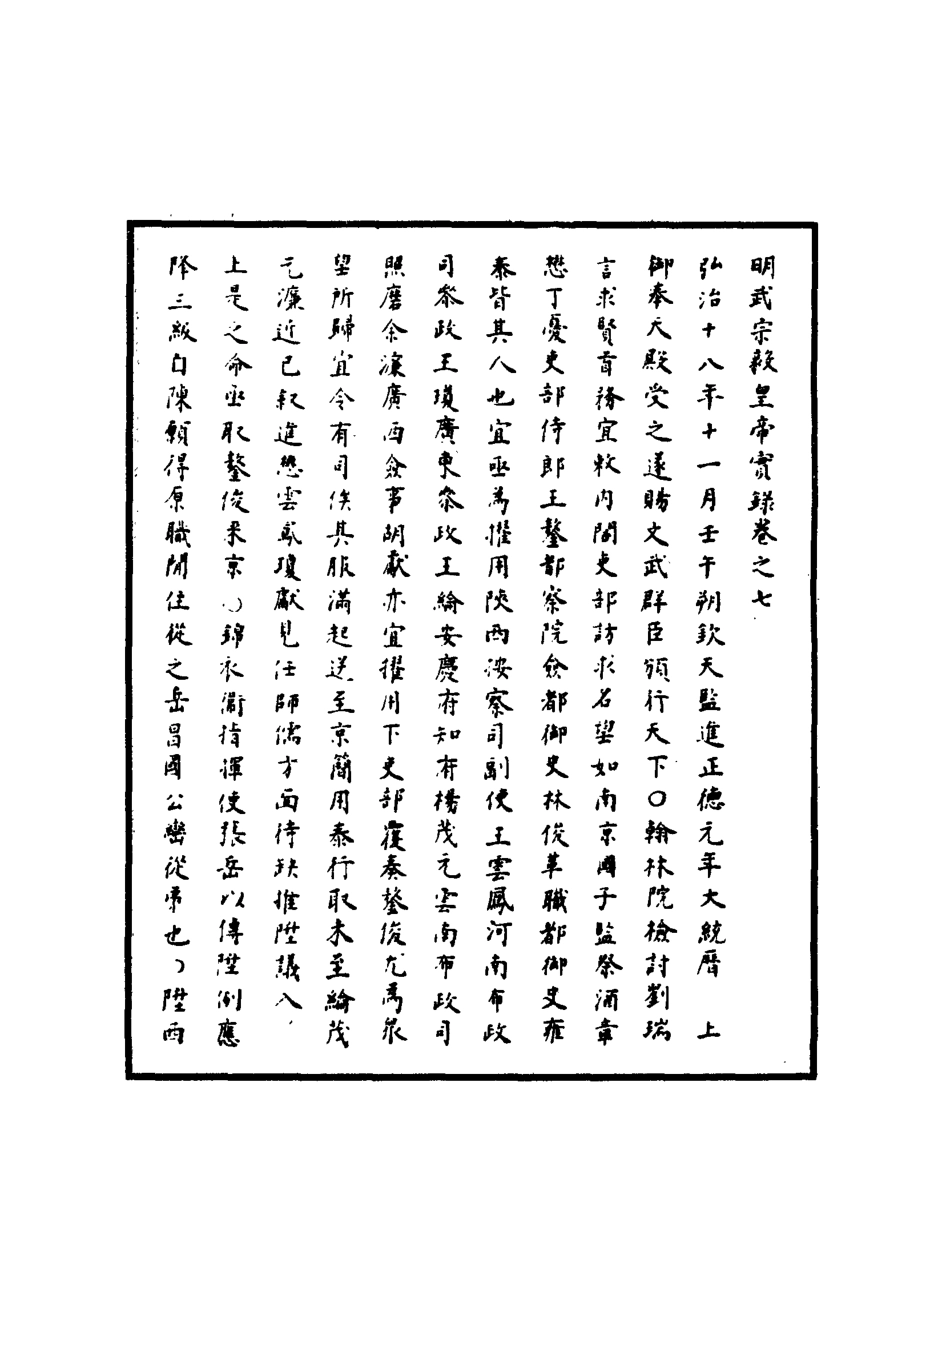 明武宗毅皇帝實錄卷之七
弘治十八年十一月壬午朔欽天監進正德元年大統曆　上
御奉天殿受之遂賜文武群臣頒行天下〇翰林院檢討劉瑞
言求賢首務宜敕內閣吏部訪求名望如南京國子監祭酒章
懋丁憂吏部侍郎王鏊都察院僉都御史林俊革職都御史雍
泰皆其人也宜亟為擢用陝西按察司副使王雲鳳河南布政
司參政王瓊廣東參政王綸安慶府知府楊茂元雲南布政司
照磨余濂廣西僉事胡獻亦宜擢用下吏部覆奏鏊俊尤為眾
望所歸宜令有司俟其服滿起送至京簡用泰行取未至綸茂
元濂近已敘進懋雲鳳瓊獻見任師儒方面待缺推陞議入
上是之命亟取鏊俊來京〇錦衣衛指揮使張岳以傳陞例應
降三級自陳願得原職閒住從之岳昌國公巒從弟也〇陞西